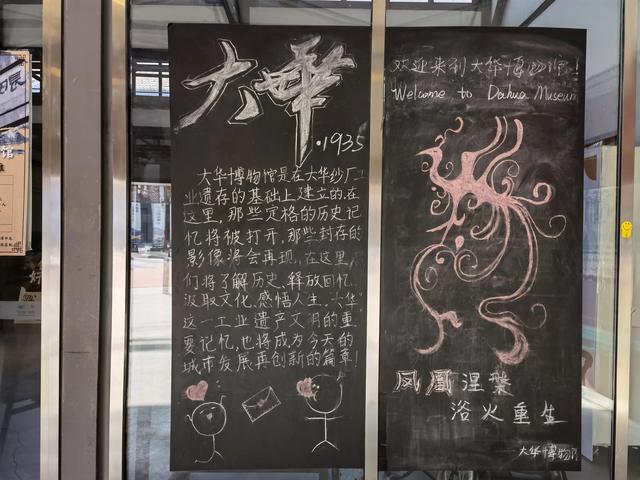 大华
·1935
大华博物馆是在大华纱厂工
业遗存的基础上建立的.在
这里,那些定格的历史记
忆将被打开,那些封存的
影像将会再现.在这里,
们将了解历史、释放回忆
汲取文化、感悟人生.大华
这一工业遗产文明的重
要记忆,也将成为今天的
城市发展再创新的篇章!
欢迎来到大华博物馆!
Welcome to Dahua Museum
凤凰涅槃
浴火重生
大华博物